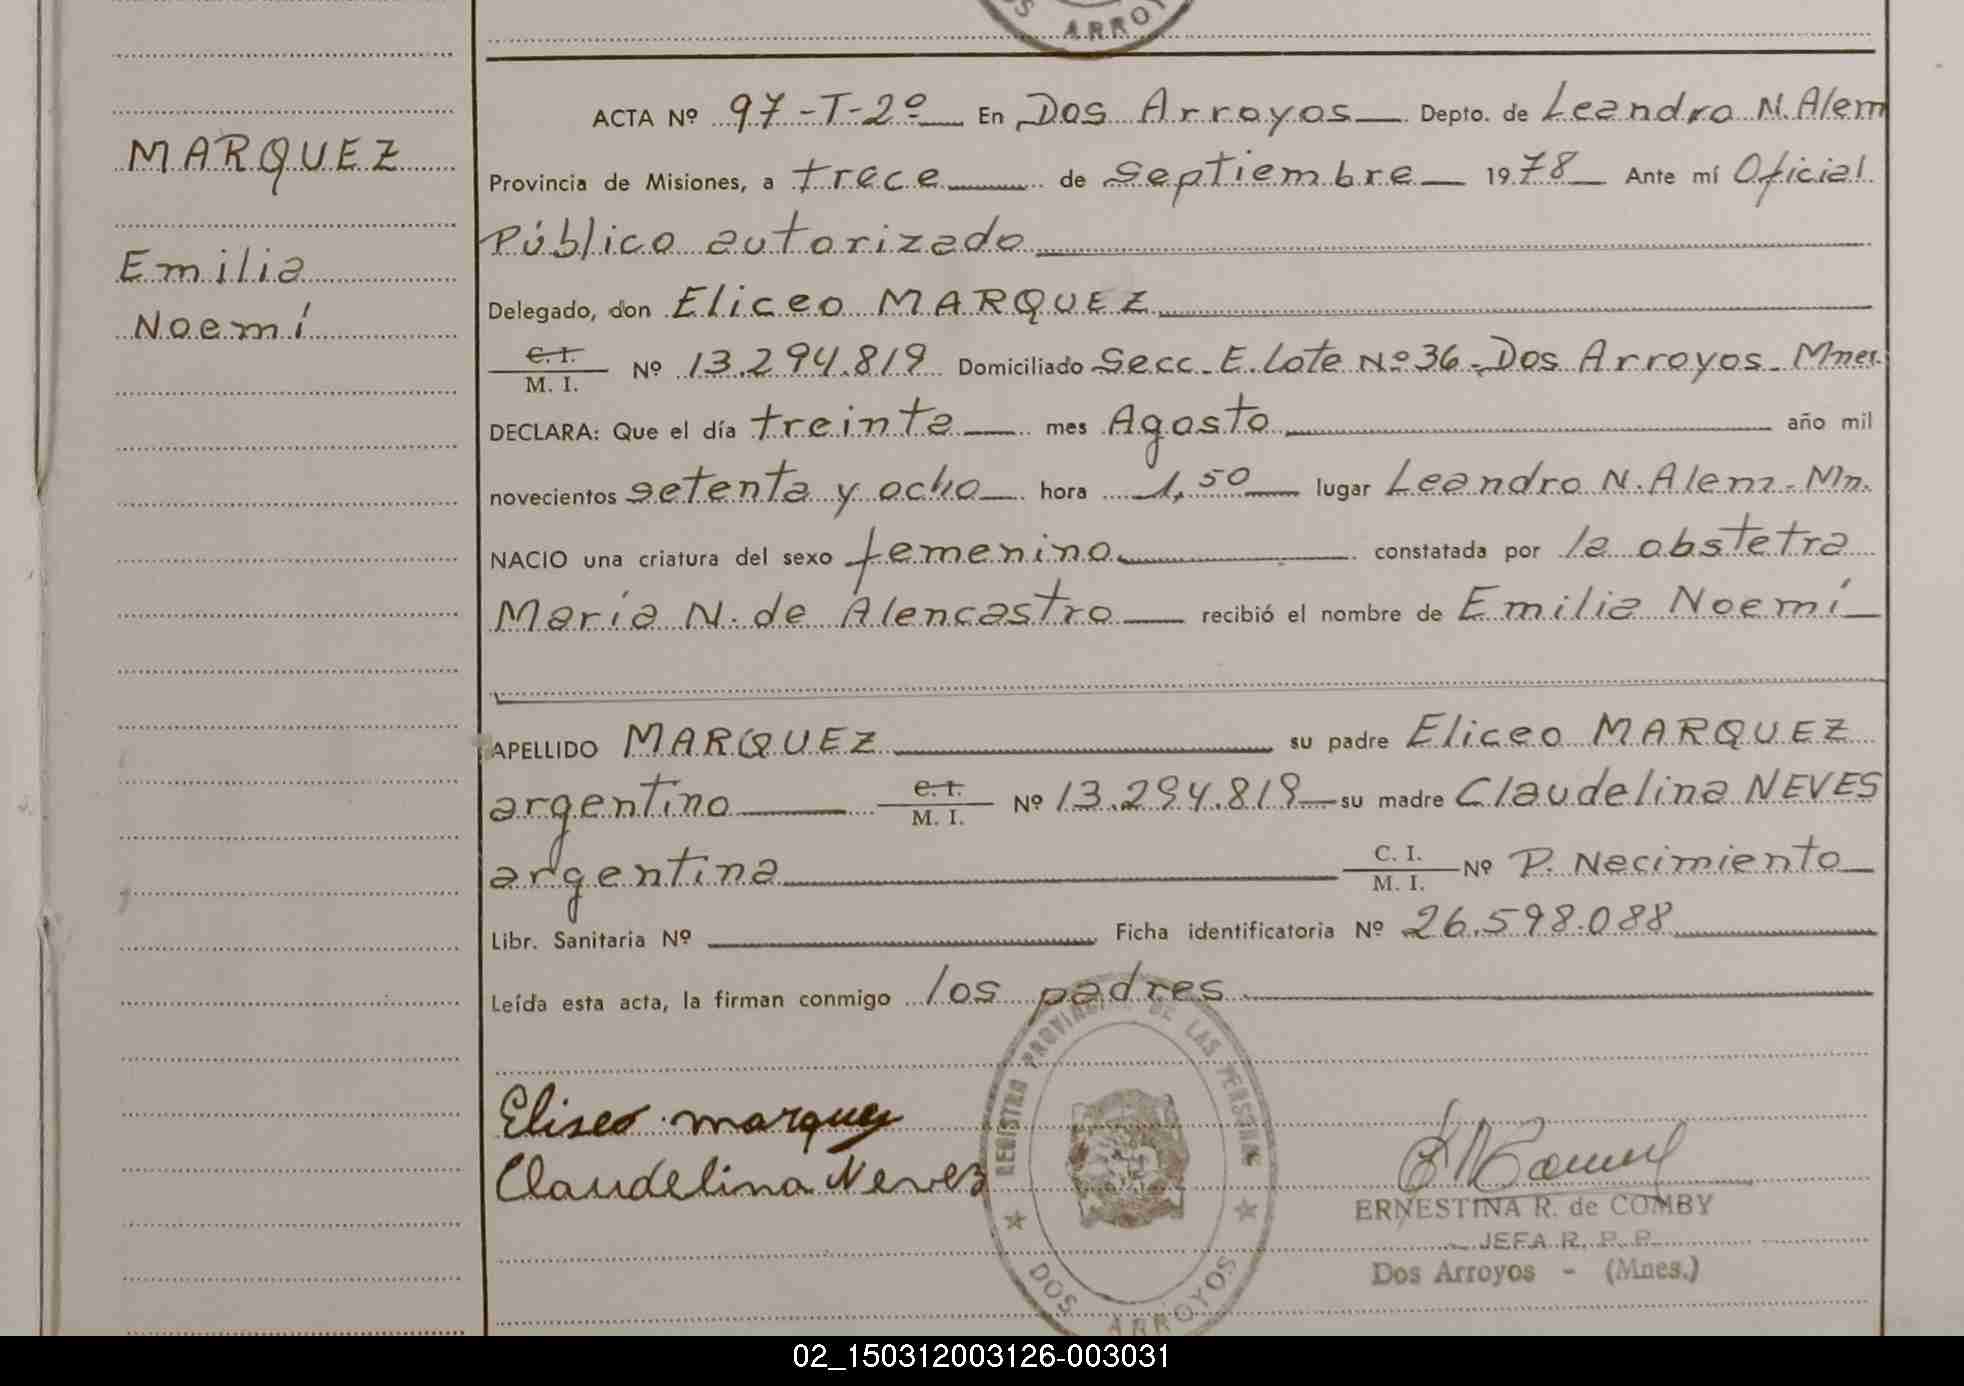 OS ARROY
MARQUEZ
Emilia
Noemí
ACTA Nº 97-T-2º En Dos Arroyos Depto. de Leandro N. Alem
Provincia de Misiones, a trece de septiembre 1978 Ante mí Oficial
Público autorizado
Delegado, don Eliceo MARQUEZ
C. I.
M. I. Nº 13.294.819 Domiciliado Secc. E. Lote Nº 36 - Dos Arroyos - Mnes.
DECLARA: Que el día treinta mes Agosto año mil
novecientos setenta y ocho hora 1,50 lugar Leandro N. Alem - Mn.
NACIO una criatura del sexo femenino constatada por la obstetra
María N. de Alencastro recibió el nombre de Emilia Noemí
APELLIDO MARQUEZ su padre Eliceo MARQUEZ
argentino C. I. M. I. Nº 13.294.819 su madre Claudelina NEVES
argentina C. I. M. I. Nº P. Necimiento
Libr. Sanitaria Nº Ficha identificatoria Nº 26.598.088
Leída esta acta, la firman conmigo los padres
REGISTRO PROVINCIAL DE LAS PERSONAS
Eliseo marquez
Claudelina Nevez
ERNESTINA R. de COMBY
JEFA R. P. P.
Dos Arroyos - (Mnes.)
DOS ARROYOS
02_150312003126-003031